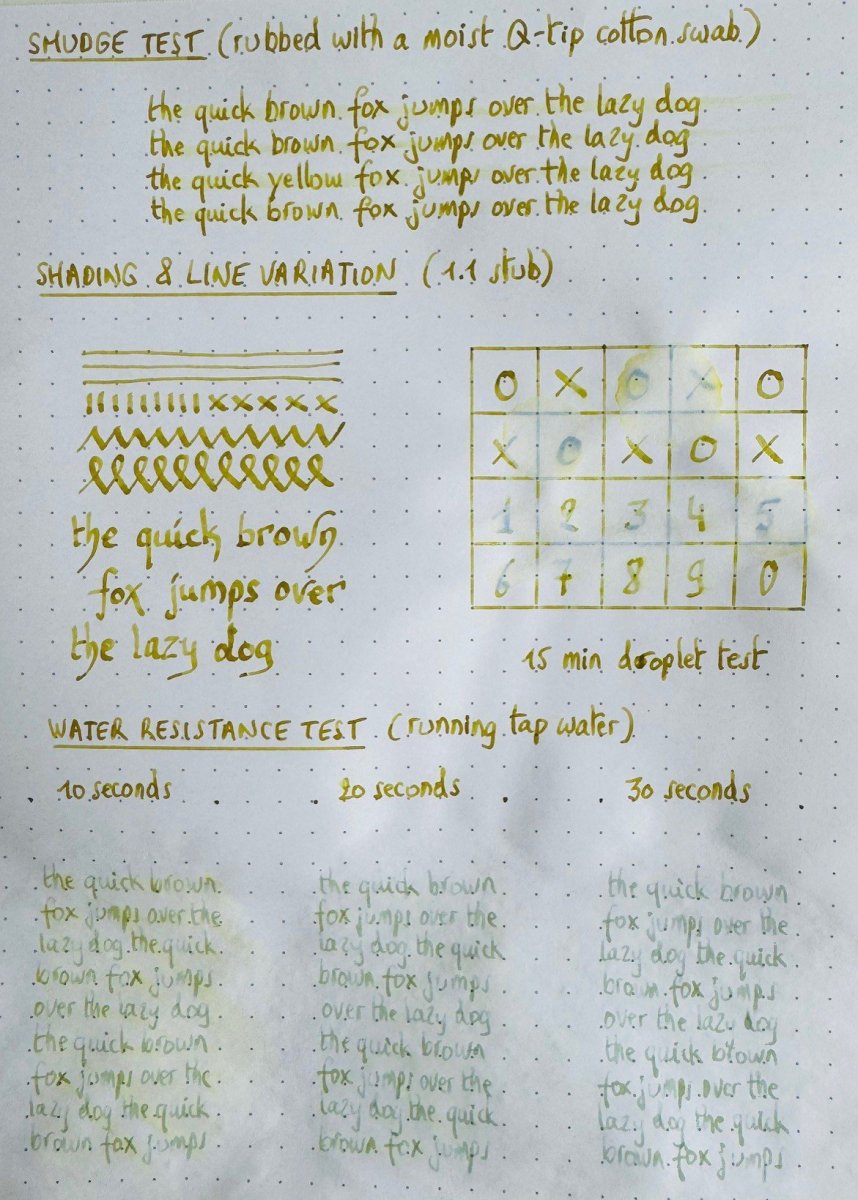 SMUDGE TEST (rubbed with a moist Q-tip cotton swab)
the quick brown fox jumps over the lazy dog
the quick brown fox jumps over the lazy dog
the quick yellow fox jumps over the lazy dog
the quick brown fox jumps over the lazy dog
SHADING & LINE VARIATION (1.1 stub)
the quick brown
fox jumps over
the lazy dog
O X O X O
X O X O X
1 2 3 4 5
6 7 8 9 0
15 min droplet test
WATER RESISTANCE TEST (running tap water)
10 seconds
the quick brown
fox jumps over the
lazy dog the quick
brown fox jumps
over the lazy dog
the quick brown
fox jumps over the
lazy dog the quick
brown fox jumps
20 seconds
the quick brown
fox jumps over the
lazy dog the quick
brown fox jumps
over the lazy dog
the quick brown
fox jumps over the
lazy dog the quick
brown fox jumps
30 seconds
the quick brown
fox jumps over the
lazy dog the quick
brown fox jumps
over the lazy dog
the quick brown
fox jumps over the
lazy dog the quick
brown fox jumps